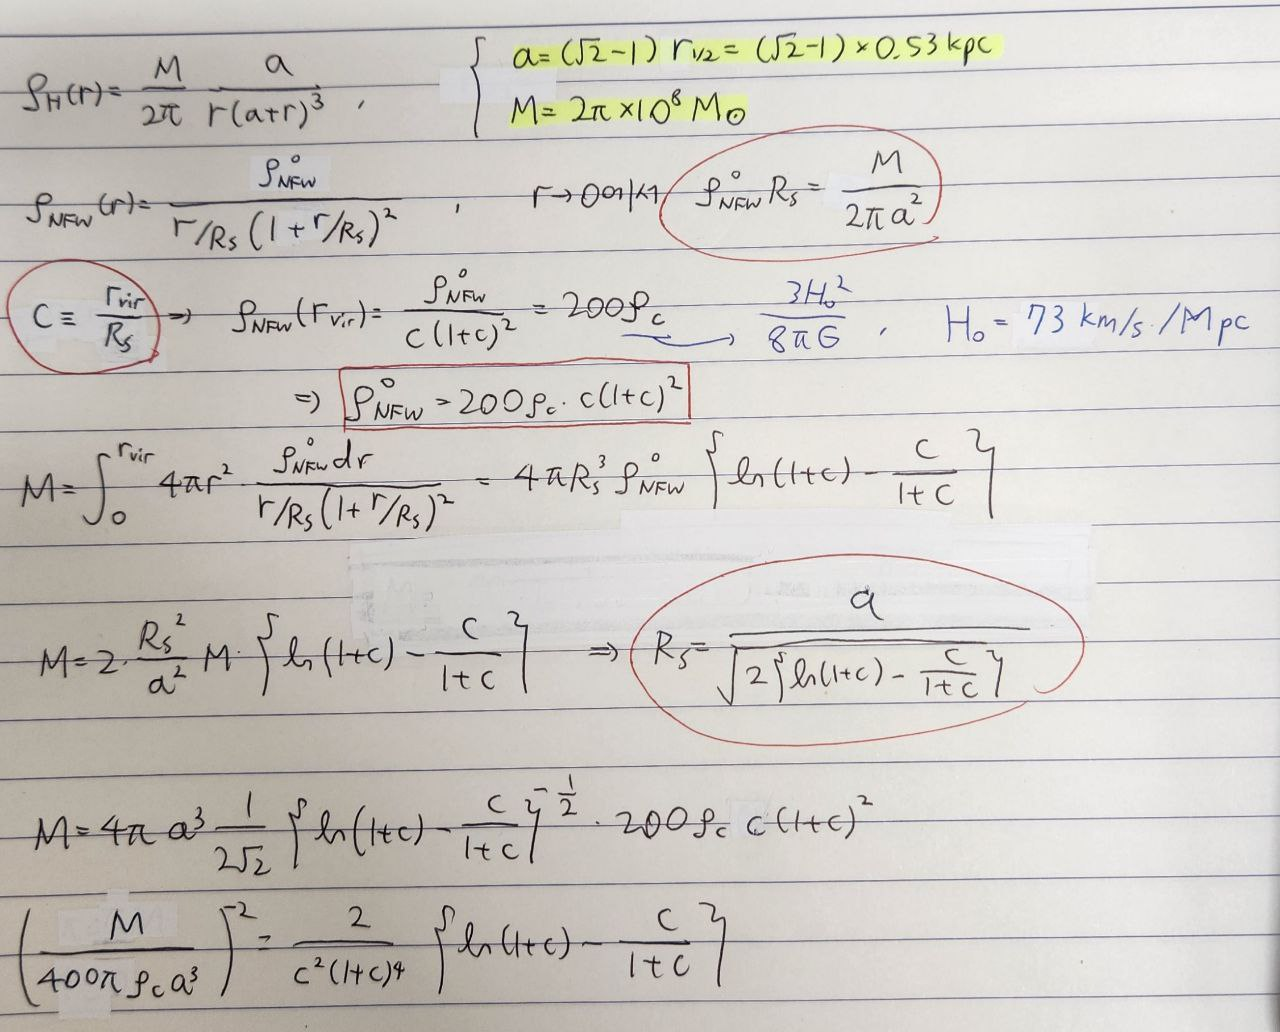 ρ_H(r) = M/2π a/r(a+r)³ , { a = (√2−1) r_1/2 = (√2−1) × 0.53 kpc
M = 2π × 10⁸ M⊙
ρ_NFW(r) = ρ°_NFW / r/R_s (1 + r/R_s)² , r→0 ρ°_NFW R_s = M/2πa²
C ≡ r_vir/R_s ⇒ ρ_NFW(r_vir) = ρ°_NFW / c(1+c)² = 200ρ_c → 3H₀²/8πG , H₀ = 73 km/s./Mpc
⇒ ρ°_NFW = 200ρ_c · c(1+c)²
M = ∫₀^r_vir 4πr² ρ°_NFW dr / r/R_s (1 + r/R_s)² = 4πR_s³ ρ°_NFW { ln(1+c) − c/1+c }
M = 2 · R_s²/a² M · { ln(1+c) − c/1+c } ⇒ R_s = a / √2{ ln(1+c) − c/1+c }
M = 4π a³ 1/2√2 { ln(1+c) − c/1+c }^−1/2 · 200ρ_c c(1+c)²
( M / 400π ρ_c a³ )^−2 = 2 / c²(1+c)⁴ { ln(1+c) − c/1+c }